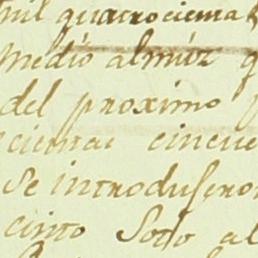 mil quatrocienta
medio almúz q
del proximo
cientas cincue
se introduseron
cinto Soto al